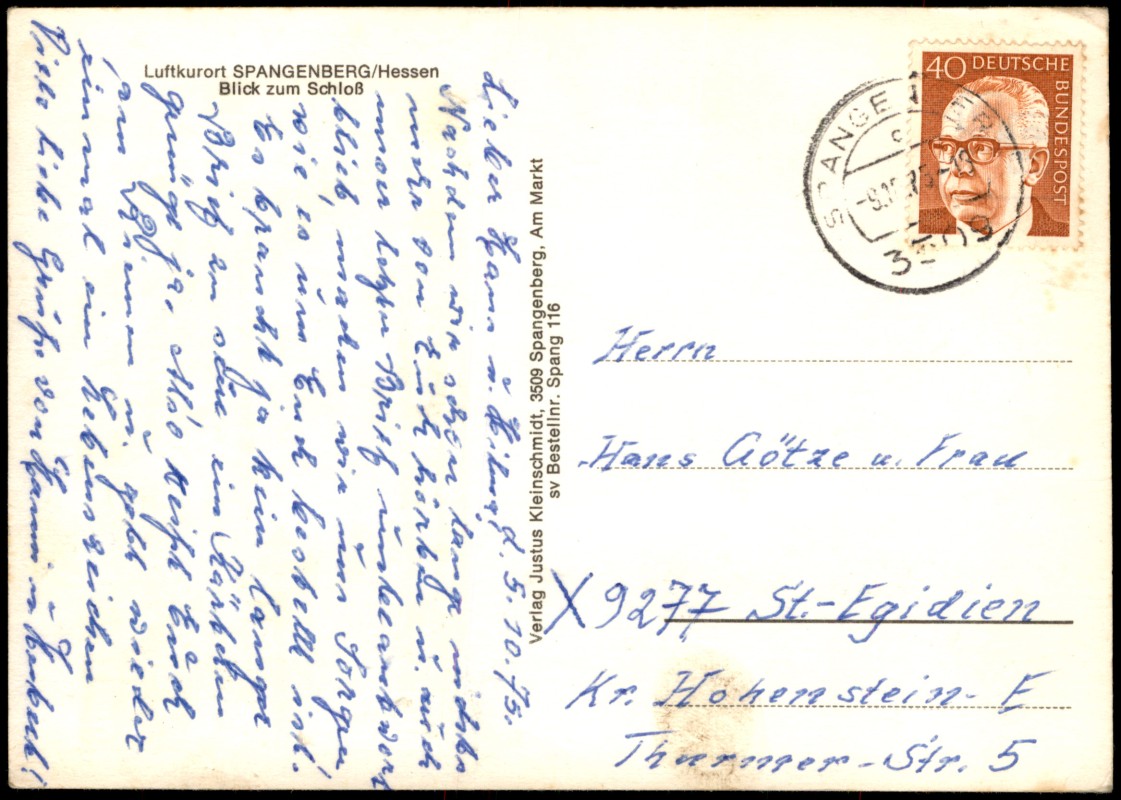 Luftkurort SPANGENBERG/Hessen
Blick zum Schloß
Lieber Hans u. d. 5.10.75.
Nachdem wir schon lange nichts
mehr von Euch hörten u. auch
unser letzter Brief unbeantwort
blieb, machen wir uns Sorgen
wie es um Euch bestellt ist.
Es braucht ja kein langer
Brief zu sein ein Kärtchen
genügt ja, Also reißt Euch
am u. gebt wieder
einmal ein Lebenszeichen
Viele liebe Grüße von Hanni u. Herbert!
Verlag Justus Kleinschmidt, 3509 Spangenberg, Am Markt
sv Bestellnr. Spang 116
40 DEUTSCHE
BUNDESPOST
SPANGENBERG
3509
Herrn
Hans Götze u. Frau
X 9277 St.-Egidien
Kr. Hohenstein-E
Thurmer-Str. 5